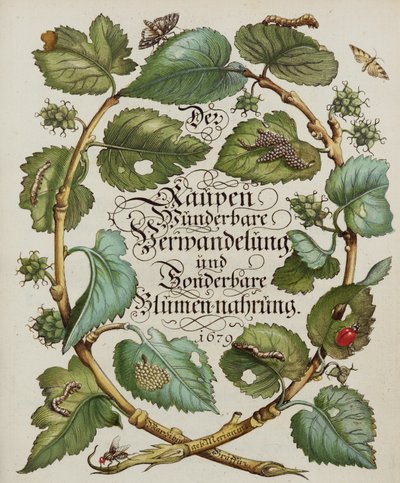 Der
Raupen
Wunderbare
Verwandelung
und
Sonderbare
Blumen-nahrung.
1679